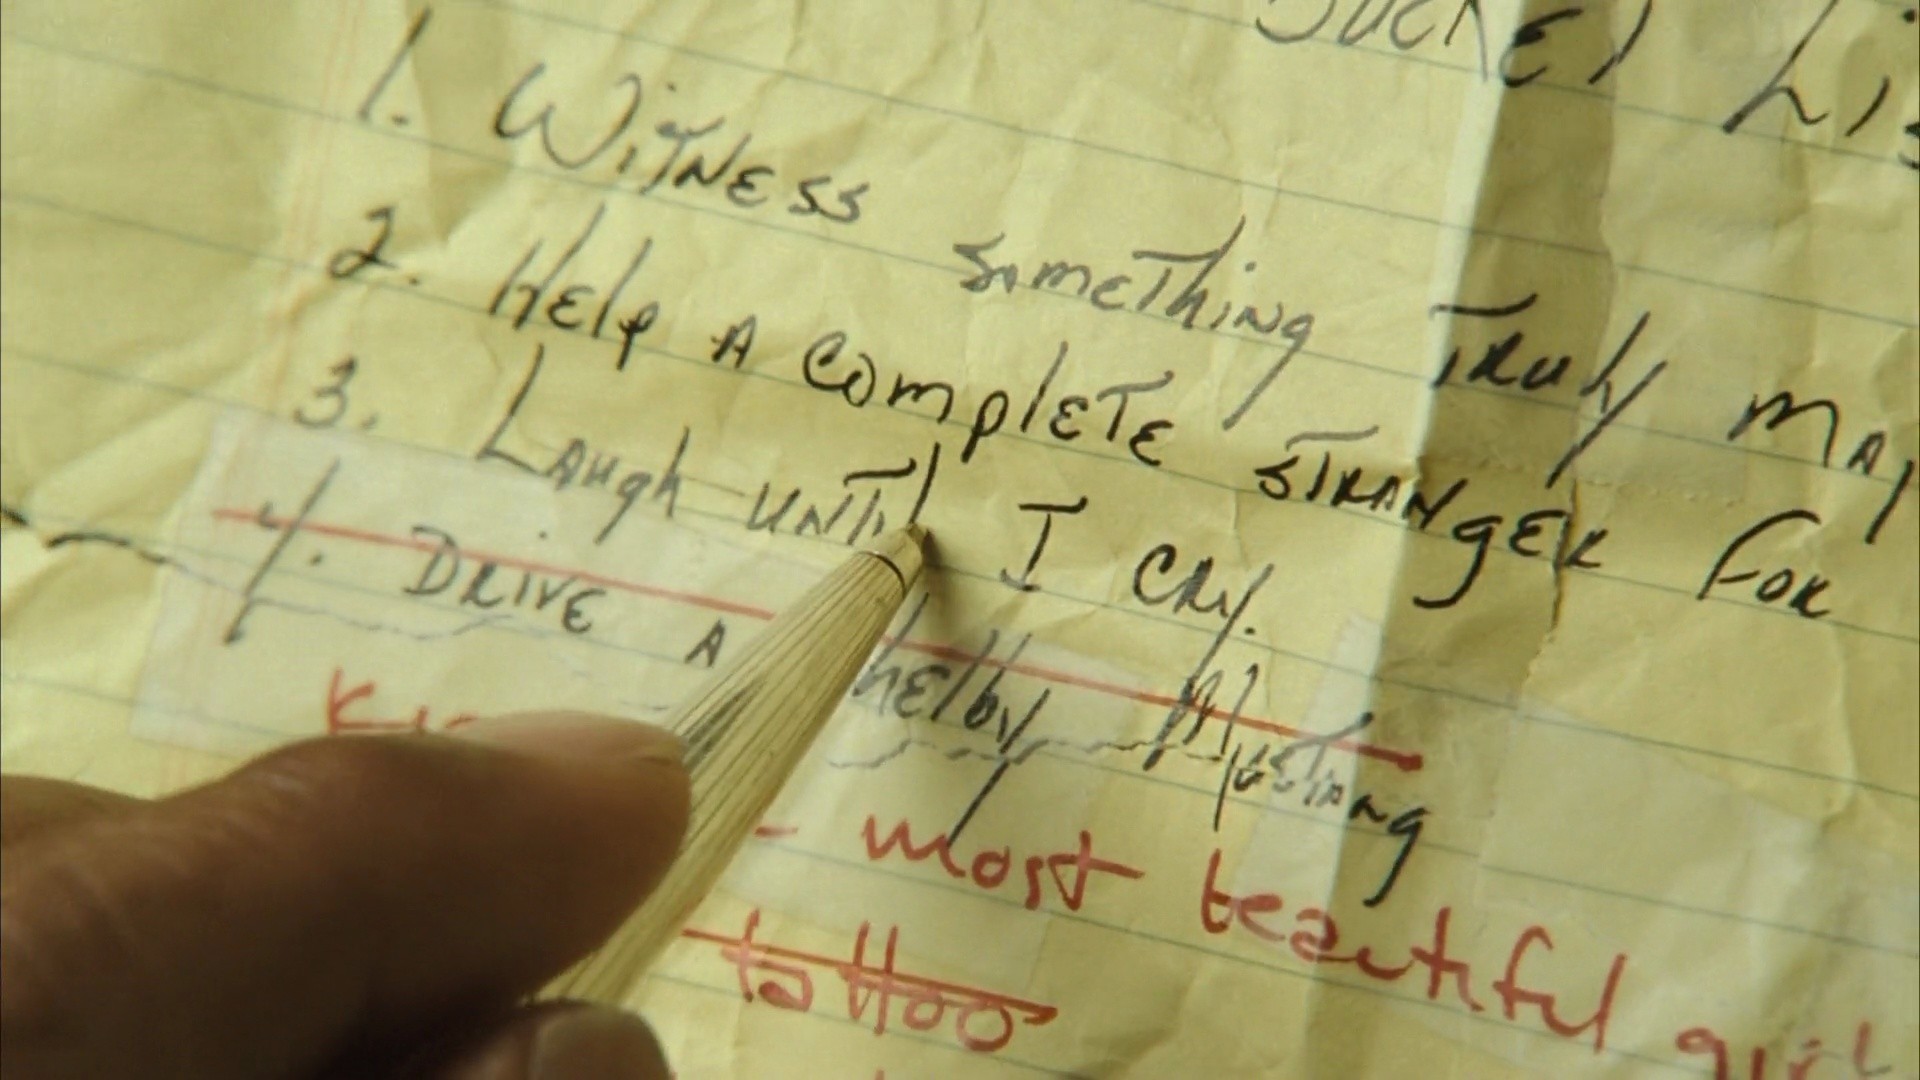 1. Witness something truly
2. Help a complete stranger for
3. Laugh until I cry.
4. Drive a Shelby Mustang
- most beautiful girl
tattoo